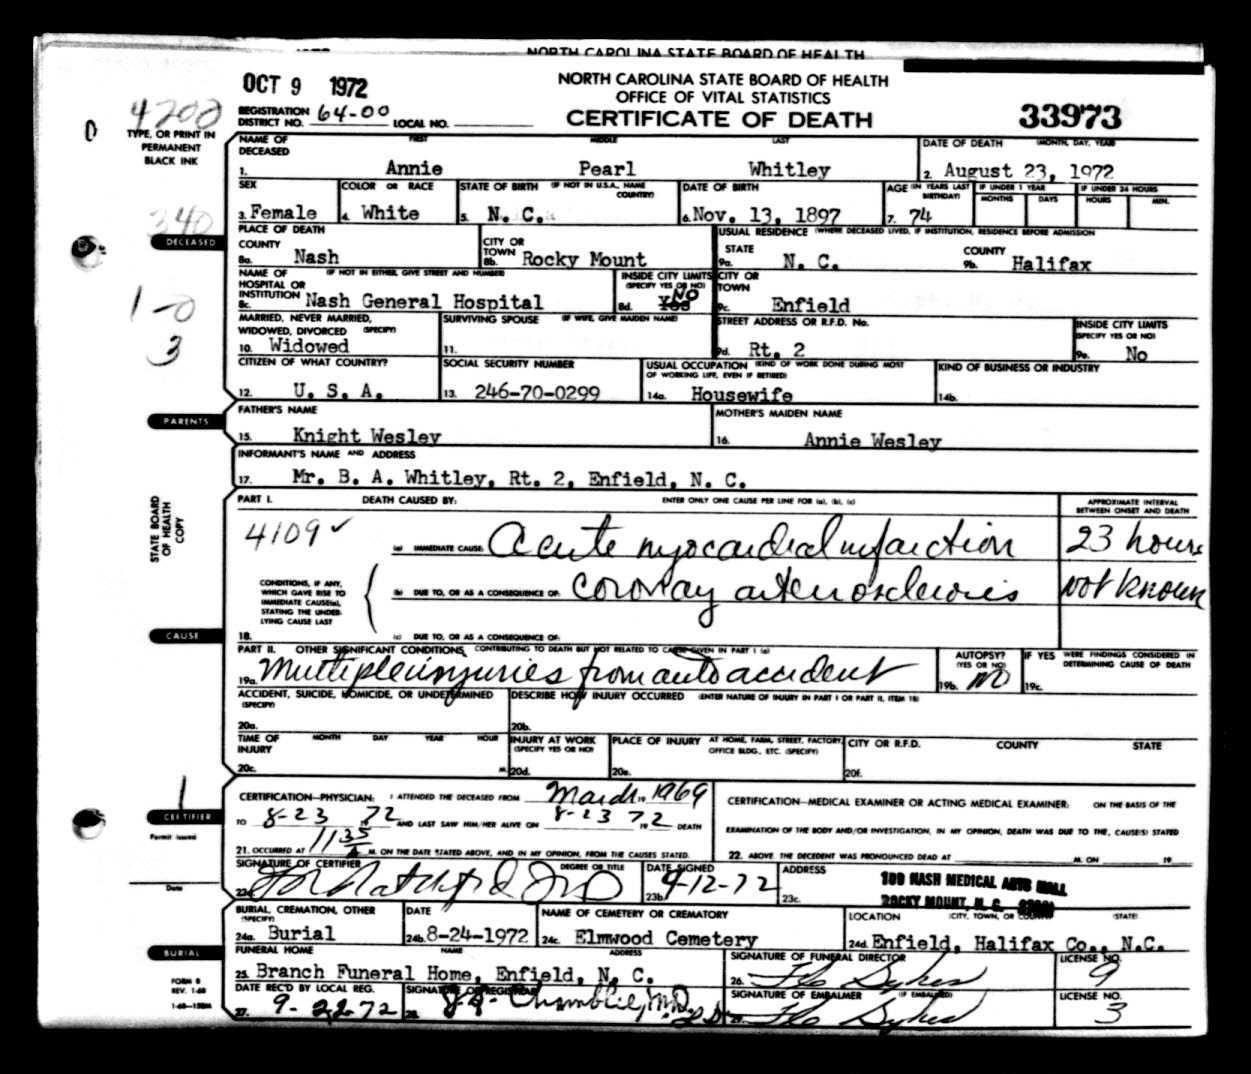 NORTH CAROLINA STATE BOARD OF HEALTH
OCT 9 1972
NORTH CAROLINA STATE BOARD OF HEALTH
OFFICE OF VITAL STATISTICS
CERTIFICATE OF DEATH
33973
4200
REGISTRATION DISTRICT NO. 64-00 LOCAL NO.
TYPE, OR PRINT IN
PERMANENT
BLACK INK
NAME OF DECEASED FIRST MIDDLE LAST DATE OF DEATH (MONTH, DAY, YEAR)
1. Annie Pearl Whitley 2. August 23, 1972
SEX COLOR OR RACE STATE OF BIRTH (IF NOT IN U.S.A., NAME COUNTRY) DATE OF BIRTH AGE (IN YEARS LAST BIRTHDAY) IF UNDER 1 YEAR MONTHS DAYS IF UNDER 24 HOURS HOURS MIN.
3. Female 4. White 5. N. C. 6. Nov. 13, 1897 7. 74
340
DECEASED
PLACE OF DEATH USUAL RESIDENCE (WHERE DECEASED LIVED, IF INSTITUTION, RESIDENCE BEFORE ADMISSION
COUNTY CITY OR TOWN STATE COUNTY
8a. Nash 8b. Rocky Mount 9a. N. C. 9b. Halifax
NAME OF HOSPITAL OR INSTITUTION (IF NOT IN EITHER, GIVE STREET AND NUMBER) INSIDE CITY LIMITS (SPECIFY YES OR NO) CITY OR TOWN
8c. Nash General Hospital 8d. Yes NO 9c. Enfield
1-0
3
MARRIED, NEVER MARRIED, WIDOWED, DIVORCED (SPECIFY) SURVIVING SPOUSE (IF WIFE, GIVE MAIDEN NAME) STREET ADDRESS OR R.F.D. No. INSIDE CITY LIMITS (SPECIFY YES OR NO)
10. Widowed 11. 9d. Rt. 2 9e. No
CITIZEN OF WHAT COUNTRY? SOCIAL SECURITY NUMBER USUAL OCCUPATION (KIND OF WORK DONE DURING MOST OF WORKING LIFE, EVEN IF RETIRED) KIND OF BUSINESS OR INDUSTRY
12. U. S. A. 13. 246-70-0299 14a. Housewife 14b.
PARENTS
FATHER'S NAME MOTHER'S MAIDEN NAME
15. Knight Wesley 16. Annie Wesley
INFORMANT'S NAME AND ADDRESS
17. Mr. B. A. Whitley, Rt. 2, Enfield, N. C.
STATE BOARD
OF HEALTH
COPY
PART I. DEATH CAUSED BY: ENTER ONLY ONE CAUSE PER LINE FOR (a), (b), (c) APPROXIMATE INTERVAL BETWEEN ONSET AND DEATH
4109 ✓ (a) IMMEDIATE CAUSE: Acute myocardial infarction 23 hours
CONDITIONS, IF ANY, WHICH GAVE RISE TO IMMEDIATE CAUSE(a), STATING THE UNDERLYING CAUSE LAST
(b) DUE TO, OR AS A CONSEQUENCE OF: Coronay arteriosclerosis Not known
CAUSE
18. (c) DUE TO, OR AS A CONSEQUENCE OF:
PART II. OTHER SIGNIFICANT CONDITIONS, CONTRIBUTING TO DEATH BUT NOT RELATED TO CAUSE GIVEN IN PART I (a) AUTOPSY? (YES OR NO) IF YES WERE FINDINGS CONSIDERED IN DETERMINING CAUSE OF DEATH
19a. Multiple injuries from auto accident 19b. NO 19c.
ACCIDENT, SUICIDE, HOMICIDE, OR UNDETERMINED (SPECIFY) DESCRIBE HOW INJURY OCCURRED (ENTER NATURE OF INJURY IN PART I OR PART II, ITEM 18)
20a. 20b.
TIME OF INJURY MONTH DAY YEAR HOUR INJURY AT WORK (SPECIFY YES OR NO) PLACE OF INJURY AT HOME, FARM, STREET, FACTORY, OFFICE BLDG., ETC. (SPECIFY) CITY OR R.F.D. COUNTY STATE
20c. M. 20d. 20e. 20f.
CERTIFIER
Permit issued
Date
CERTIFICATION—PHYSICIAN: I ATTENDED THE DECEASED FROM March 19 1969
TO 8-23 1972 AND LAST SAW HIM/HER ALIVE ON 8-23 72 19 DEATH
21. OCCURRED AT 1135 A M. ON THE DATE STATED ABOVE, AND IN MY OPINION, FROM THE CAUSES STATED.
CERTIFICATION—MEDICAL EXAMINER OR ACTING MEDICAL EXAMINER: ON THE BASIS OF THE
EXAMINATION OF THE BODY AND/OR INVESTIGATION, IN MY OPINION, DEATH WAS DUE TO THE, CAUSE(S) STATED
22. ABOVE. THE DECEDENT WAS PRONOUNCED DEAD AT M. ON 19
SIGNATURE OF CERTIFIER DEGREE OR TITLE DATE SIGNED ADDRESS
MD 23b. 9-12-72 23c. 100 NASH MEDICAL ARTS MALL
ROCKY MOUNT, N. C.
BURIAL, CREMATION, OTHER (SPECIFY) DATE NAME OF CEMETERY OR CREMATORY LOCATION (CITY, TOWN, OR COUNTY) (STATE)
24a. Burial 24b. 8-24-1972 24c. Elmwood Cemetery 24d. Enfield, Halifax Co., N.C.
BURIAL
FUNERAL HOME NAME ADDRESS SIGNATURE OF FUNERAL DIRECTOR LICENSE NO.
25. Branch Funeral Home, Enfield, N. C. 26. Flo Sykes 9
FORM 8
REV. 1-68
1-68—150M
DATE REC'D BY LOCAL REG. SIGNATURE OF REGISTRAR SIGNATURE OF EMBALMER (IF EMBALMED) LICENSE NO.
27. 9-22-72 28. J. A. Chamblee, M.D. 29. Flo Sykes 3